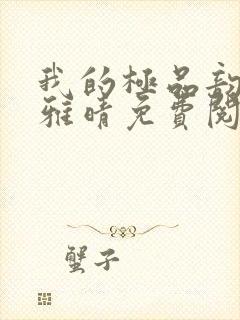 我的極品
雅晴免費閱
蟹子